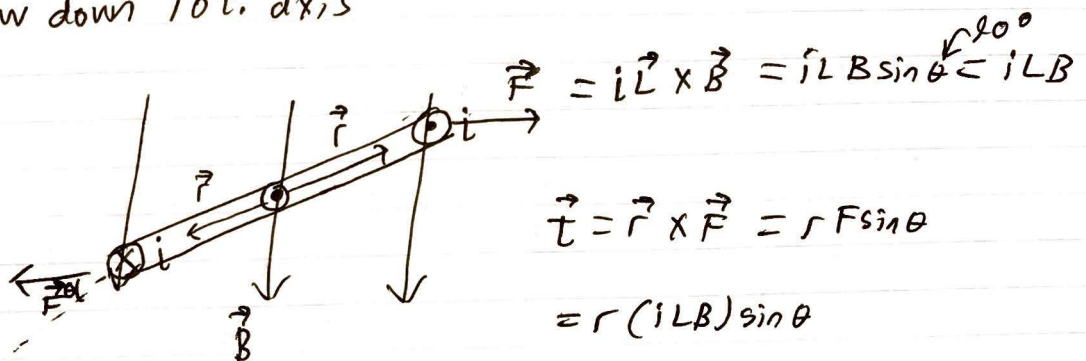 down rot. axis
90°
F⃗ = iL⃗ × B⃗ = iLBsinθ = iLB
r⃗ i
r⃗
i
τ⃗ = r⃗ × F⃗ = rFsinθ
F⃗
B⃗ = r(iLB)sinθ